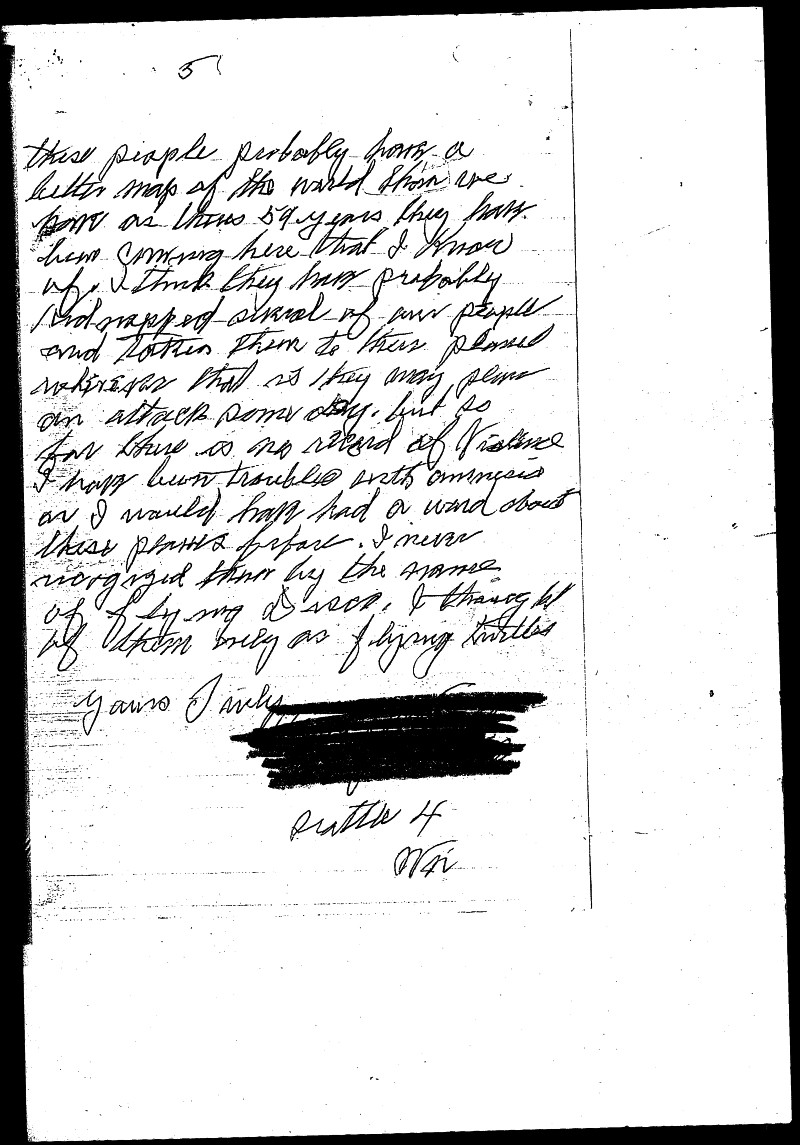 5
these people probably have a
better map of the world than we
have as thus 59 years they have
been comming here that I Know
of. I think they have probably
kidnapped several of our people
and taken them to their planet
wherever that is they may plan
an attack some day. but so
far there is no record of Violence
I have been trouble with amnesia
or I would have had a word about
these planes before. I never
recognized them by the name
of flying discs. I thought
of them only as flying turtles
Yours Truly
Seattle 4